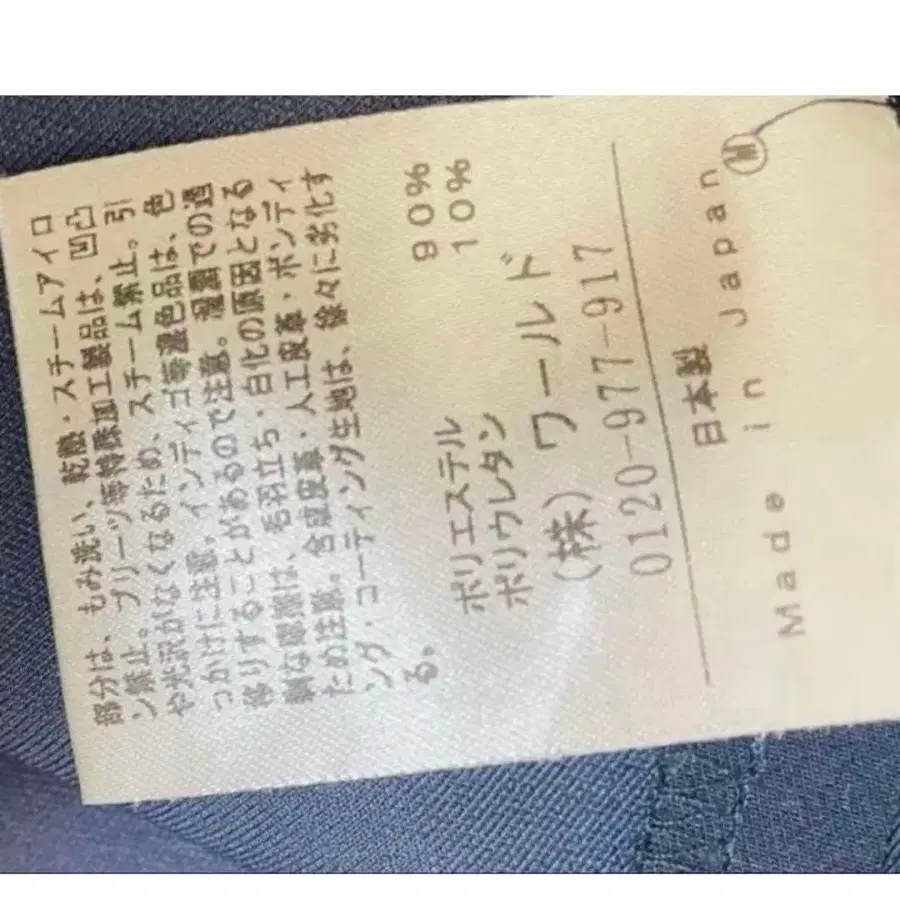 部分は、もみ洗い、乾燥・スチームアイロ
ン禁止。プリーツ等特殊加工製品は、凹凸
や光沢がなくなるため、スチーム禁止。引
っかけに注意。インディゴ等濃色品は、色
移りすることがあるので注意。湿潤での過
度な摩擦は、毛羽立ち・白化の原因となる
ため注意。合成皮革・人工皮革・ボンディ
ング・コーティング生地は、徐々に劣化す
る。
ポリエステル 90%
ポリウレタン 10%
(株)ワールド
0120-977-917
日本製
Made in Japan
M